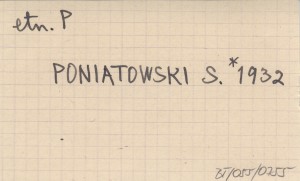 etn. P
PONIATOWSKI S. *1932
BJ/055/0255